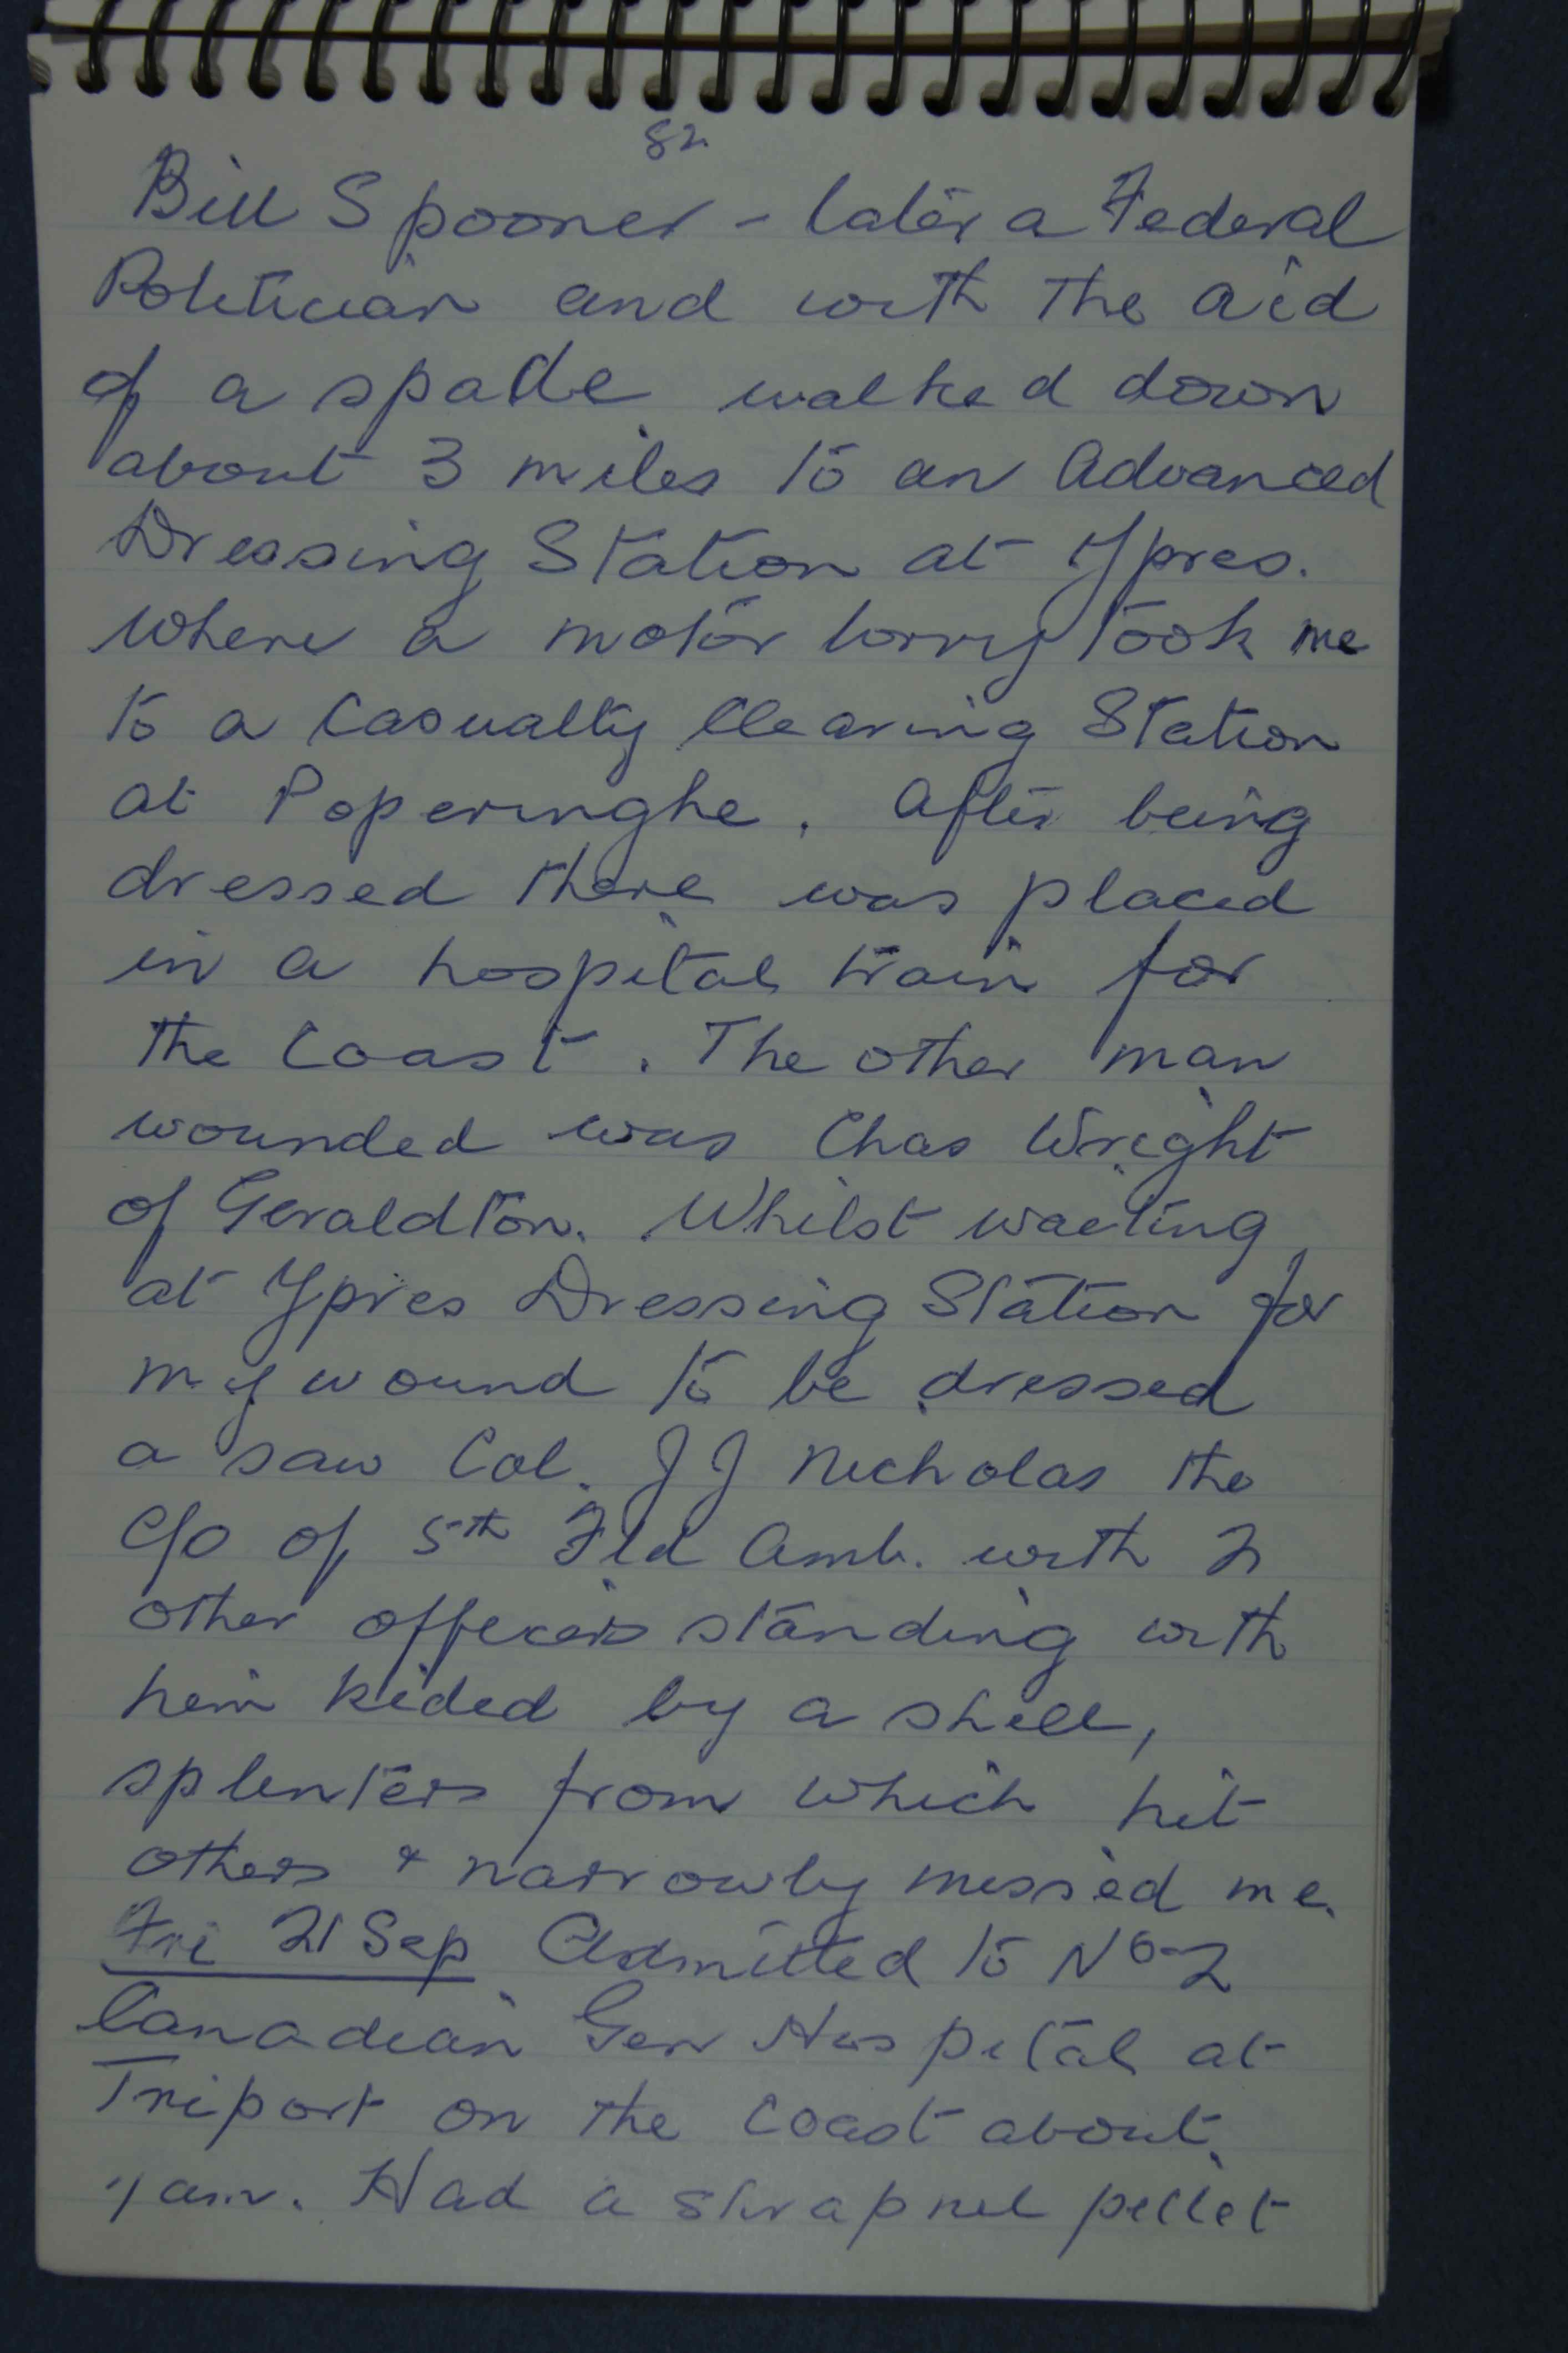 82
Bill Spooner - later a Federal
Politician and with the aid
of a spade walked down
about 3 miles to an Advanced
Dressing Station at Ypres.
where a motor lorry took me
to a Casualty Clearing Station
at Poperinghe. After being
dressed there was placed
in a hospital train for
the Coast. The other man
wounded was Chas Wright
of Geraldton. Whilst waiting
at Ypres Dressing Station for
my wound to be dressed
a saw Col. J J Nicholas the
C/O of 5th Fld Amb. with 2
other officers standing with
him killed by a shell,
splinters from which hit
others & narrowly missed me.
Fri 21 Sep Admitted to No 2
Canadian Gen Hospital at
Triport on the Coast about
am. Had a shrapnel pellet